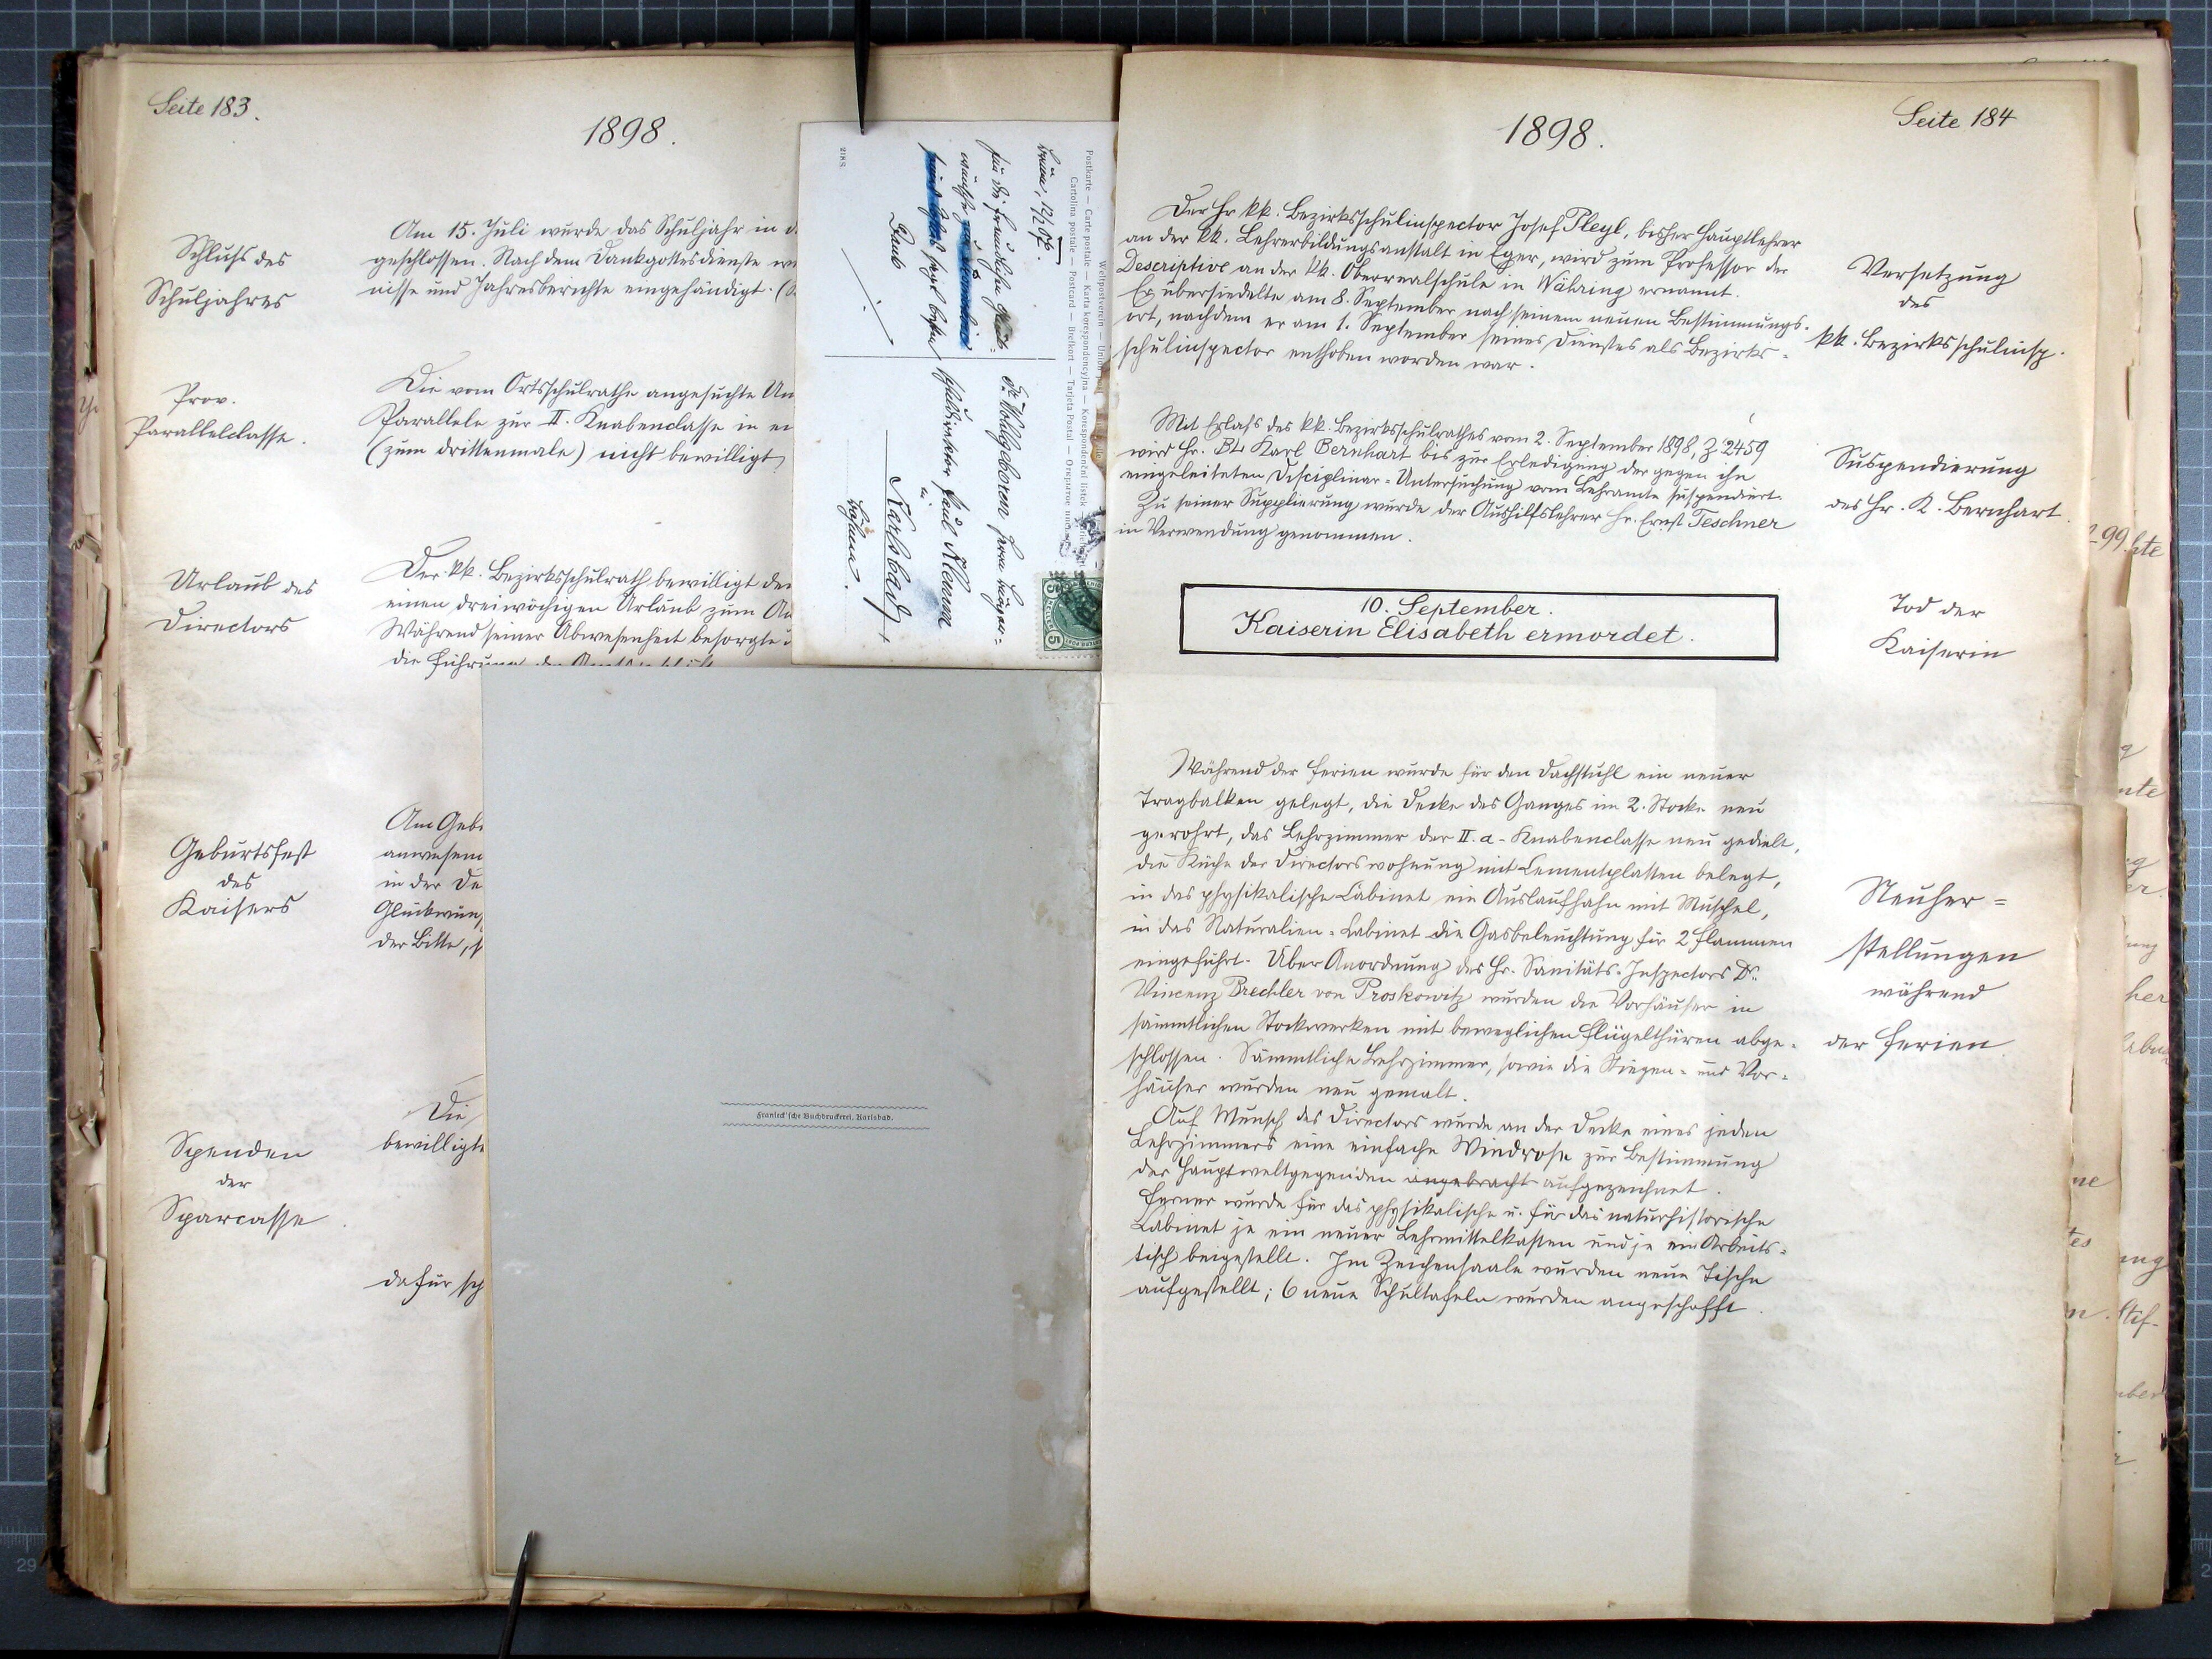 Seite 183.
1898.
Schluß des
Schuljahres
Am 15. Juli wurde das Schuljahr in d
geschlossen. Nach dem Dankgottesdienste
nisse und Jahresberichte eingehändigt.
Prov.
Parallelclasse.
Die vom Ortsschulrathe angesuchte Un
Parallele zur II. Knabenclasse in
(zum drittenmale) nicht bewilligt
Urlaub des
Directors
Der kk. Bezirksschulrath bewilligt
einen dreiwöchigen Urlaub zum
Während seiner Abwesenheit besorgte
die Führung der
Geburtsfest
des
Kaisers
Am Geb
anwesen
in der
Glückwun
der Bitte,
Spenden
der
Sparcasse
Die
bewilligte
dafür sch
Weltpostverein
Postkarte — Carte postale — Karta korespondencyjna — Korespondenční lístek
Cartolina postale — Postcard — Brefkort — Tarjeta Postal
Für die freundlichen
wünsche
Sr. Wohlgeboren Herrn Bürger-
schuldirektor Paul Klemm
Karlsbad
Böhmen.
2188
5
5
Franieck'sche Buchdruckerei, Karlsbad.
1898.
Seite 184
Der Hr kk. Bezirksschulinspector Josef Pleyl, bisher Hauptlehrer
an der kk. Lehrerbildungsanstalt in Eger, wird zum Professor der
Descriptive an der kk. Oberrealschule in Währing ernannt.
Er übersiedelte am 8. September nach seinem neuen Bestimmungs-
ort, nachdem er am 1. September seines Dienstes als Bezirks-
schulinspector enthoben worden war.
Versetzung
des
kk. Bezirksschulinsp.
Mit Erlaß des kk. Bezirksschulrathes vom 2. September 1898, Z 2459
wird Hr. BL Karl Bernhart bis zur Erledigung der gegen ihn
eingeleiteten Disciplinar-Untersuchung vom Lehramte suspendiert.
Zu seiner Supplierung wurde der Aushilfslehrer Hr. Ernst Teschner
in Verwendung genommen.
Suspendierung
des Hr. K. Bernhart.
10. September.
Kaiserin Elisabeth ermordet.
Tod der
Kaiserin
Während der Ferien wurde für den Dachstuhl ein neuer
Tragbalken gelegt, die Decke des Ganges im 2. Stocke neu
gerohrt, das Lehrzimmer der II. a-Knabenclasse neu gedielt,
die Küche der Directorswohnung mit Cementplatten belegt,
in das physikalische Cabinet ein Auslaufhahn mit Muschel,
in das Naturalien-Cabinet die Gasbeleuchtung für 2 Flammen
eingeführt. Über Anordnung des Hr. Sanitäts-Inspectors Dr.
Vincenz Brechler von Proskowitz wurden die Vorhäuser in
sämmtlichen Stockwerken mit beweglichen Flügelthüren abge-
schlossen. Sämmtliche Lehrzimmer, sowie die Stiegen- und Vor-
häuser wurden neu gemalt.
Auf Wunsch des Directors wurde an der Decke eines jeden
Lehrzimmers eine einfache Windrose zur Bestimmung
der Hauptweltgegenden angebracht aufgezeichnet.
Ferner wurde für das physikalische u. für das naturhistorische
Cabinet je ein neuer Lehrmittelkasten und je ein Arbeits-
tisch beigestellt. Im Zeichensaale wurden neue Tische
aufgestellt; 6 neue Schultafeln wurden angeschafft.
Neuher-
stellungen
während
der Ferien.